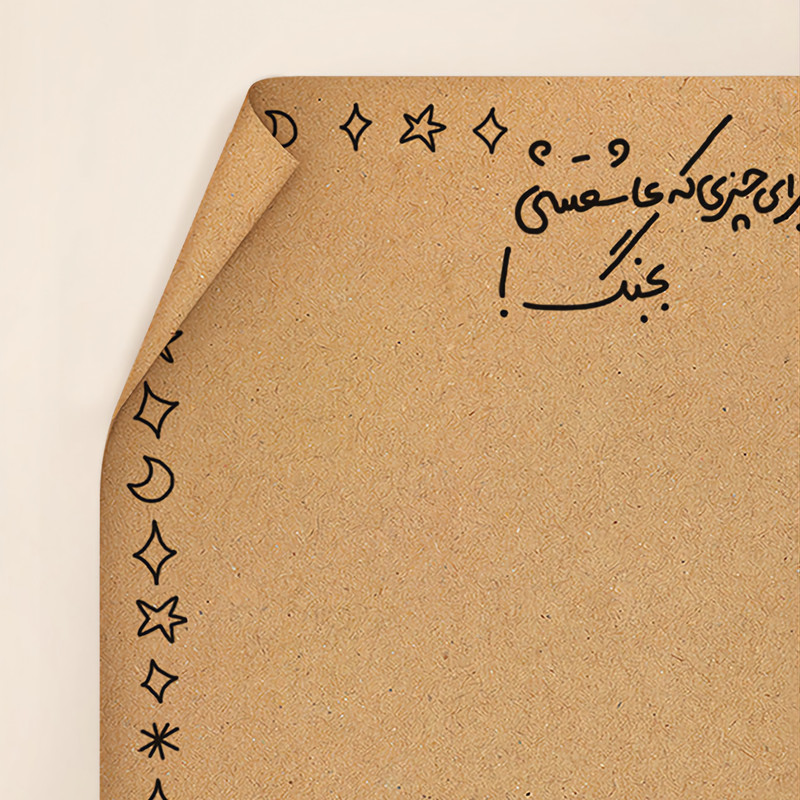 برای چیزی که عاشقشی
بجنگ !